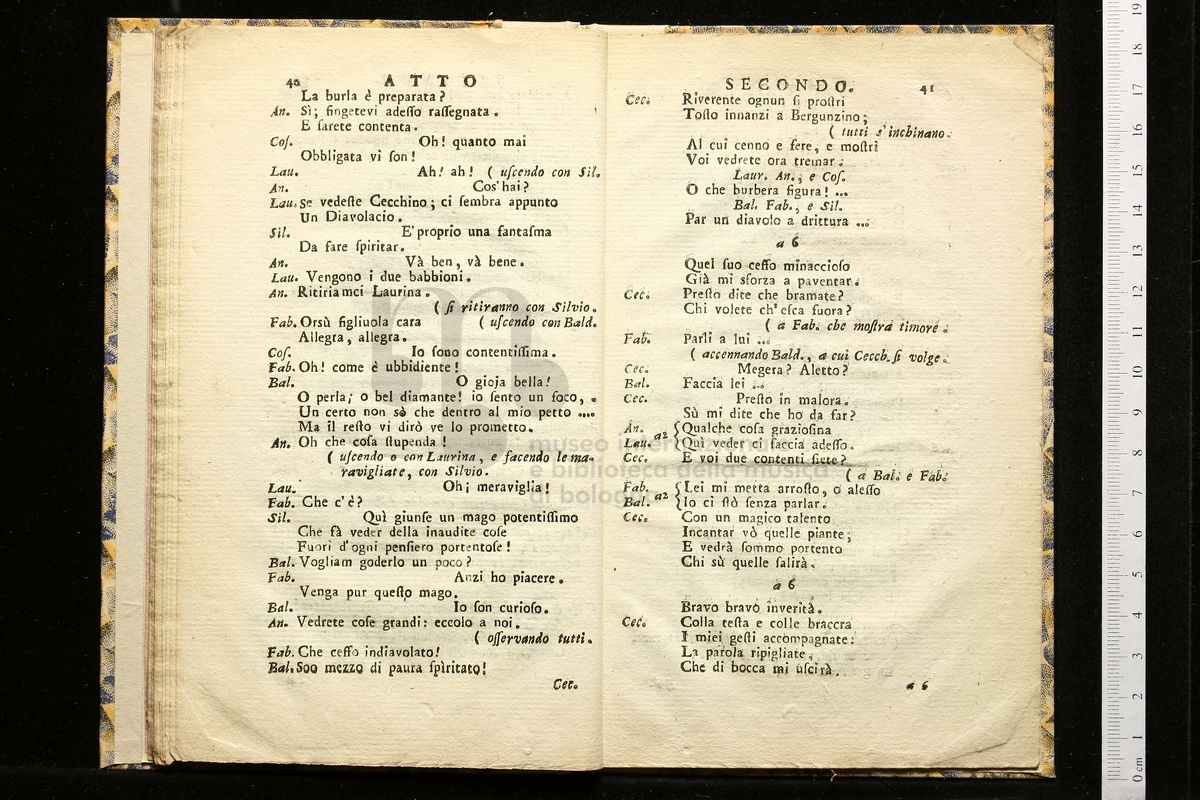 40 ATTO
La burla è preparata?
An. Sì; fingetevi adeſſo raſſegnata.
E ſarete contenta.
Coſ. Oh! quanto mai
Obbligata vi ſon!
Lau. Ah! ah! ( uſcendo con Sil.
An. Cos' hai?
Lau. Se vedeſte Cecchino; ci ſembra appunto
Un Diavolacio.
Sil. E' proprio una fantaſma
Da fare ſpiritar.
An. Và ben, và bene.
Lau. Vengono i due babbioni.
An. Ritiriamci Laurina.
( ſi ritiranno con Silvio.
Fab. Orsù figliuola cara ( uſcendo con Bald.
Allegra, allegra.
Coſ. Io ſono contentiſſima.
Fab. Oh! come è ubbidiente!
Bal. O gioja bella!
O perla; o bel diamante! io ſento un foco,
Un certo non sò che dentro al mio petto ....
Ma il reſto vi dirò ve lo prometto.
An. Oh che coſa ſtupenda!
( uſcendo o con Laurina, e facendo le ma-
ravigliate, con Silvio.
Lau. Oh; meraviglia!
Fab. Che c'è?
Sil. Quì giunſe un mago potentiſſimo
Che fà veder della inaudite coſe
Fuori d'ogni penſiero portentoſe!
Bal. Vogliam goderlo un poco?
Fab. Anzi ho piacere.
Venga pur queſto mago.
Bal. Io ſon curioſo.
An. Vedrete coſe grandi: eccolo a noi.
( oſſervando tutti.
Fab. Che ceffo indiavolato!
Bal. Soo mezzo di paura ſpìritato!
Cec.
SECONDO. 41
Cec. Riverente ognun ſi proſtri
Toſto innanzi a Bergunzino;
( tutti s'inchinano.
Al cui cenno e fere, e moſtri
Voi vedrete ora tremar.
Laur. An., e Coſ.
O che burbera figura! ...
Bal. Fab., e Sil.
Par un diavolo a drittura ...
a 6
Quel ſuo ceffo minaccioſo
Già mi sforza a paventar.
Cec. Preſto dite che bramate?
Chi volete ch'eſca fuora?
( a Fab. che moſtra timore.
Fab. Parli a lui ...
( accennando Bald., a cui Cecch. ſi volge.
Cec. Megera? Aletto?
Bal. Faccia lei ...
Cec. Preſto in malora.
Sù mi dite che ho da far?
An. a2 { Qualche coſa grazioſina
Lau. { Quì veder ci faccia adeſſo.
Cec. E voi due contenti ſiete?
( a Bal. e Fab.
Fab. a2 { Lei mi metta arroſto, o aleſſo
Bal. { Io ci ſtò ſenza parlar.
Cec. Con un magico talento
Incantar vò quelle piante;
E vedrà ſommo portento
Chi sù quelle ſalirà.
a 6
Bravo bravo inverità.
Cec. Colla teſta e colle braccra
I miei geſti accompagnate:
La parola ripigliate,
Che di bocca mi uſcirà.
a 6
museo internazionale
e biblioteca della musica
di bologna
0 cm 1 2 3 4 5 6 7 8 9 10 11 12 13 14 15 16 17 18 19